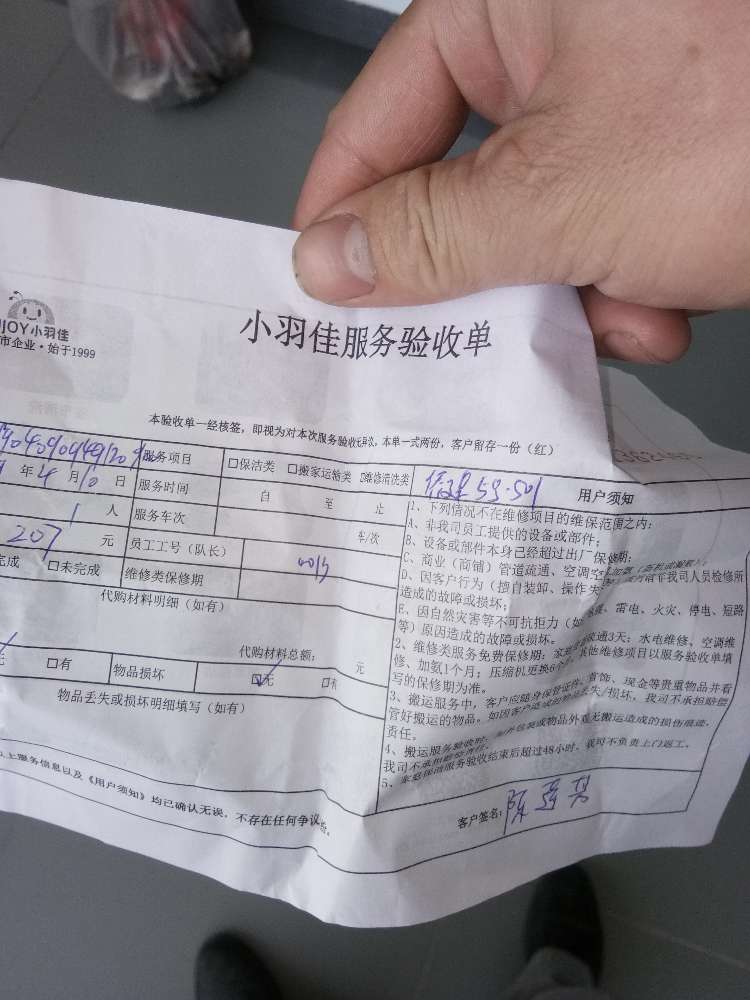 JOY小羽佳
市企业·始于1999
小羽佳服务验收单
本验收单一经核签，即视为对本次服务验收无异议，本单一式两份，客户留存一份（红）
服务项目 □保洁类 □搬家运输类 □维修清洗类 59-501
年4月10日 服务时间 自 至 止
1人 服务车次 车/次
207元 员工工号（队长） 0013
完成 □未完成 维修类保修期
代购材料明细（如有）
代购材料总额： 元
□有 物品损坏 □无 □有
物品丢失或损坏明细填写（如有）
以上服务信息以及《用户须知》均已确认无误，不存在任何争议
用户须知
1、下列情况不在维修项目的维保范围之内：
A、非我司员工提供的设备或部件；
B、设备或部件本身已经超过出厂保修期；
C、商业（商铺）管道疏通、空调空
D、因客户行为（擅自装卸、操作失 非我司人员检修所
造成的故障或损坏；
E、因自然灾害等不可抗拒力（如 雷电、火灾、停电、短路
等）原因造成的故障或损坏。
2、维修类服务免费保修期： 疏通3天；水电维修、空调维
修、加氨1个月；压缩机更换6个 其他维修项目以服务验收单填
写的保修期为准。
3、搬运服务中，客户应随身保管证件、首饰、现金等贵重物品并看
管好搬运的物品。如因客户造成的物品丢失/损坏，我司不承担赔偿
责任。
4、搬运服务验收时， 外包装或物品外观无搬运造成的损伤痕迹，
我司不承担赔偿责任。
5、家庭保洁服务验收结束后超过48小时，我司不负责上门返工。
客户签名：